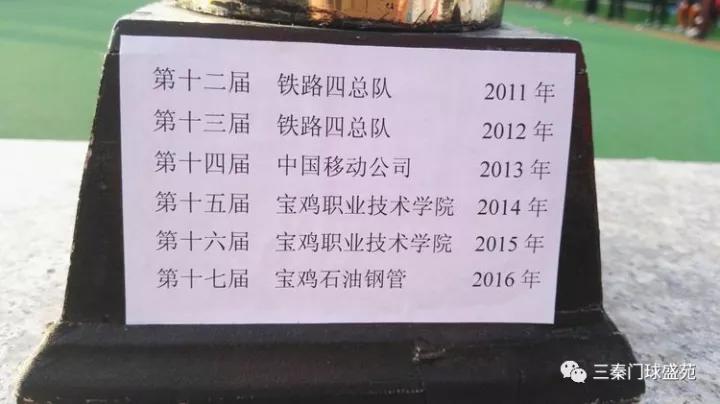 第十二届 铁路四总队 2011年
第十三届 铁路四总队 2012年
第十四届 中国移动公司 2013年
第十五届 宝鸡职业技术学院 2014年
第十六届 宝鸡职业技术学院 2015年
第十七届 宝鸡石油钢管 2016年
三秦门球盛苑